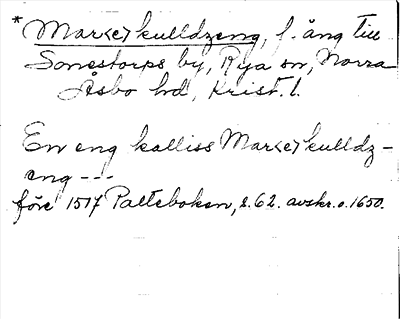 * Mar<e>kulldzeng, f. äng till
Sonestorps by, Rya sn, Norra
Åsbo hd, Krist. l.
En eng kalliss Mar<e>kulldz-
eng ---
före 1517 Palteboken, s. 62. avskr. o. 1650.